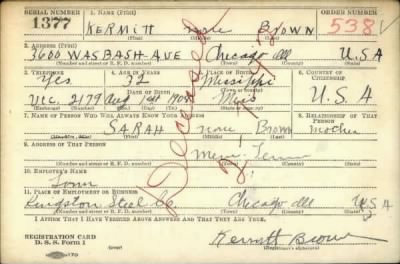 SERIAL NUMBER 1. NAME (Print) ORDER NUMBER
1377 KERMITT none Brown 538
(First) (Middle) (Last)
2. ADDRESS (Print)
3600 WASBASH AVE Chicago Ill U.S.A
(Number and street or R. F. D. number) (Town) (County) (State)
3. TELEPHONE 4. AGE IN YEARS 5. PLACE OF BIRTH 6. COUNTRY OF CITIZENSHIP
Yes 32 Mississippi
DATE OF BIRTH U.S.A
Vic. 2179 Aug 1st Miss
(Exchange) (Number) (Mo.) (Day) (Yr.) (Town or county) (State or country)
7. NAME OF PERSON WHO WILL ALWAYS KNOW YOUR ADDRESS 8. RELATIONSHIP OF THAT PERSON
SARAH none Brown mother
(Mr., Mrs., Miss) (First) (Middle) (Last)
9. ADDRESS OF THAT PERSON
Tenn
(Number and street or R. F. D. number) (Town) (County) (State)
10. EMPLOYER'S NAME
11. PLACE OF EMPLOYMENT OR BUSINESS
Kingston Steel Co. Chicago Ill U.S.A
(Number and street or R. F. D. number) (Town) (County) (State)
I AFFIRM THAT I HAVE VERIFIED ABOVE ANSWERS AND THAT THEY ARE TRUE.
REGISTRATION CARD
D. S. S. Form 1 Kermitt Brown
(Registrant's signature)
Deceased